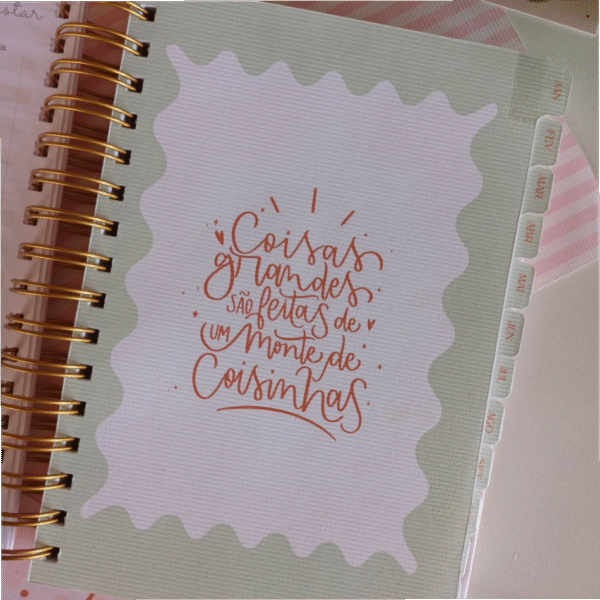 Coisas
grandes
SÃO feitas de
UM monte de
Coisinhas
JAN
FEV
MAR
ABR
MAI
JUN
JUL
AGO
SET